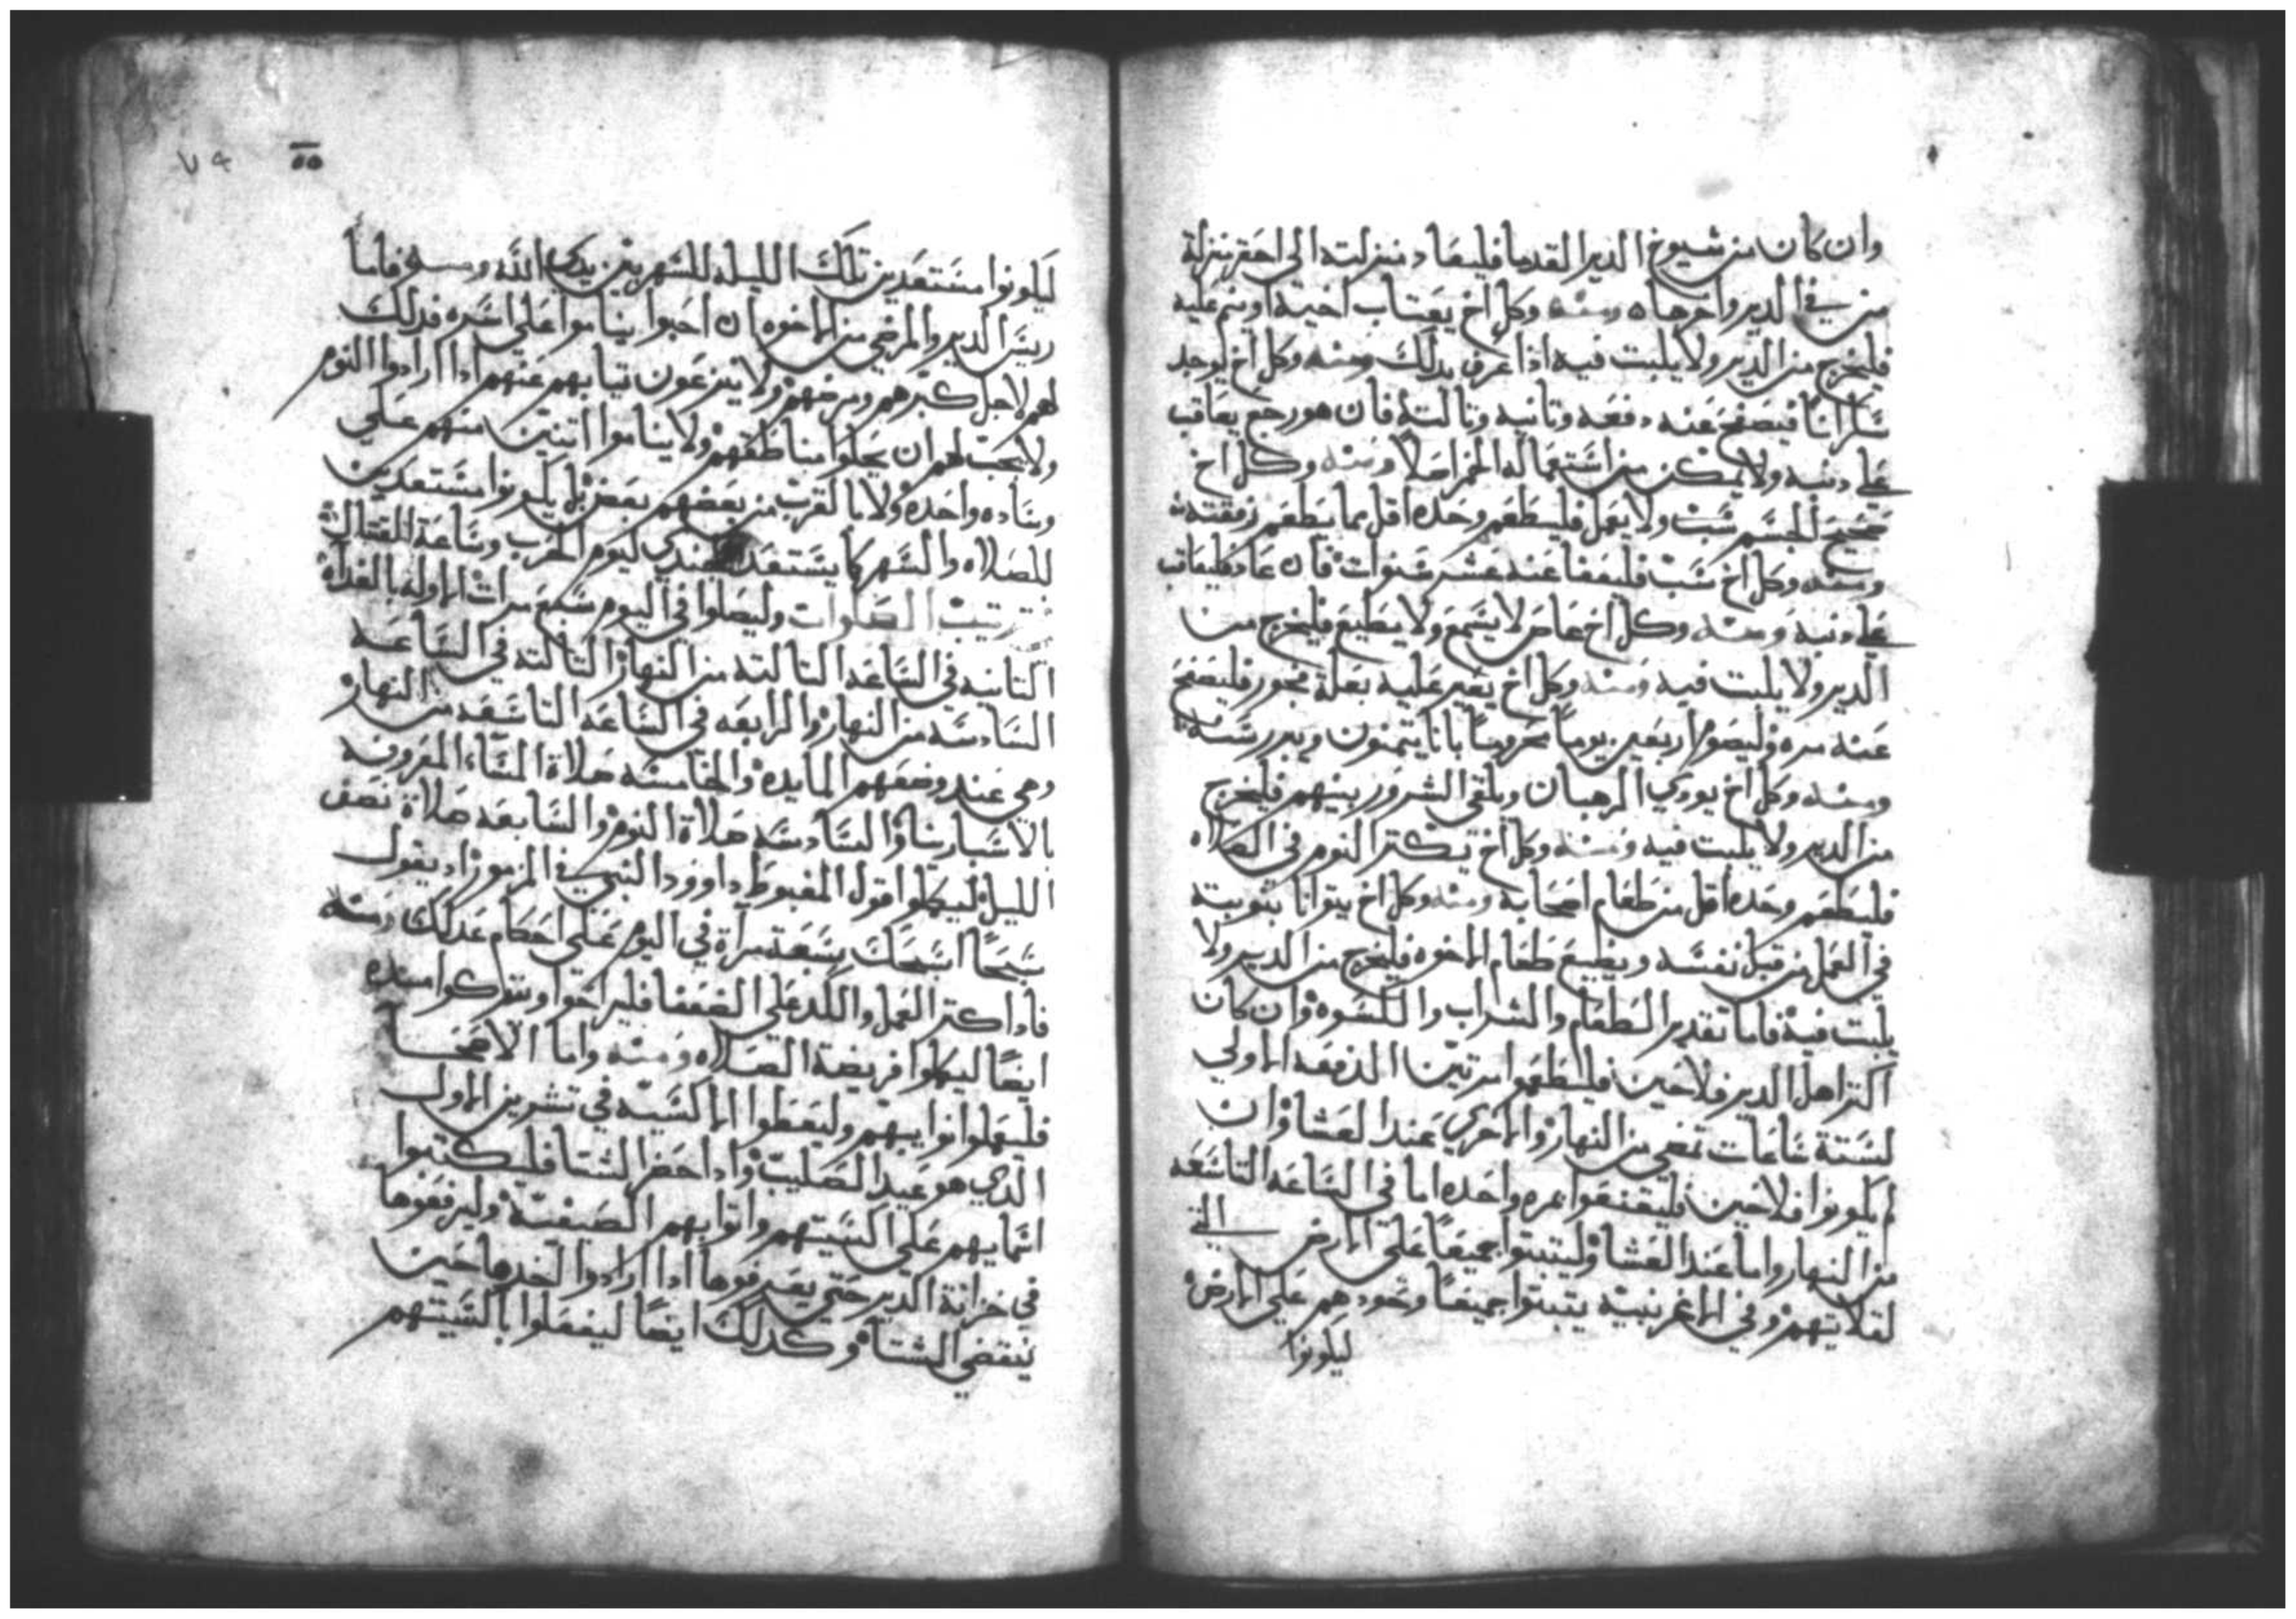 وان كان من شيوخ الدير القدما فليعاد منزلته الى احقر منزلة
من في الدير واخرهاه ومنه وكل اخ يغتاب اخيه او ينم عليه
فليخرج من الدير ولا يلبت فيه اذا عرف بدلك ومنه وكل اخ يوجد
سكرانا فيصفح عنه دفعه وتانيه وتالته فان هو رجع يعاقب
على دنبه ولا يمكن من استعماله الخمر اصلا ومنه وكل اخ
صحيح الجسم شب ولا يعمل فليطعم وحده اقل مما يطعم رفقته
ومنه وكل اخ شب فليعفا عنه عشر سنوات فان عاد فليعاقب
على دنبه ومنه وكل اخ عاص لا يسمع ولا يطيع فليخرج من
الدير ولا يلبت فيه ومنه وكل اخ يغير عليه بعلة فجور فليصفح
عنه مره وليصوم اربعين يوما محروسا بانا يتمنون
ومنه وكل اخ يودي الرهبان ويلقي الشرور بينهم فليخرج
من الدير ولا يلبت فيه ومنه وكل اخ يكتر النوم في الصلاه
فليطعم وحده اقل من طعام اصحابه ومنه وكل اخ يتوانا بنوبته
في العمل من قبل نفسه ويطيع طعام الاخوه فليخرج من الدير ولا
يلبت فيه فاما تقدير الطعام والشراب والكسوه وان كان
اكتر اهل الدير فلاحين فليطعموا مرتين الدفعه الاولي
لستة ساعات تمضي من النهار والاخري عند العشا وان
لم يكونوا فلاحين فليقنعوا بمره واحده اما في الساعه التاسعه
من النهار واما عند العشا وليتبتوا جميعا على الارض التي
لقلايتهم وفي الاغربنية يتبتوا جميعا وخود هم على الارض
ليكونوا
٥٥
ليكونوا مستعدين تلك الليله للسهر بين يدي الله ومنه فاما
ريس الدير والمرضي من الاخوه ان احبوا يناموا على اسره فدلك
لهم لاجل كبرهم ومرضهم ولا ينزعون تيابهم عنهم ادا ارادوا النوم
ولا يجب لهم ان يحلوا مناطقهم ولا يناموا اتنين منهم على
وساده واحده ولا بالقرب من بعضهم بعض بل يكونوا مستعدين
للصلاه والسهر كما يستعد الجندي ليوم الحرب وساعة القتال
ترتيب الصلوات وليصلوا في اليوم سبع مرات الاوله بالغداه
التانيه في الساعه التالته من النهار التالته في الساعه
السادسه من النهار والرابعه في الساعه التاسعه من النهار
وهي عند وضعهم المايده والخامسه صلاة المساء المعروفه
بالاسبارنا والسادسه صلاة النوم والسابعه صلاة نصف
الليل ليكملوا قول المغبوط داوود النبي في المزمور اد يقول
سبحا اسبحك سبعة مراة في اليوم على احكام عدلك ومنه
فادا كتر العمل والكد على الضعفا فليراحوا ويتركوا منده
ايضا ليكملوا فريضة الصلاه ومنه واما الاصحا
فليعملوا نوايبهم وليعطوا الاكسيه في تشرين الاول
الدي هو عيد الصليب وادا حضر الشتا فليكتبوا
اسمايهم على اكسيتهم واتوابهم الصيفيه وليرفعوها
في خزانة الدير حتى يعرفوها ادا ارادوا اخدها حين
ينقضي الشتاء وكدلك ايضا ليفعلوا باكسيتهم